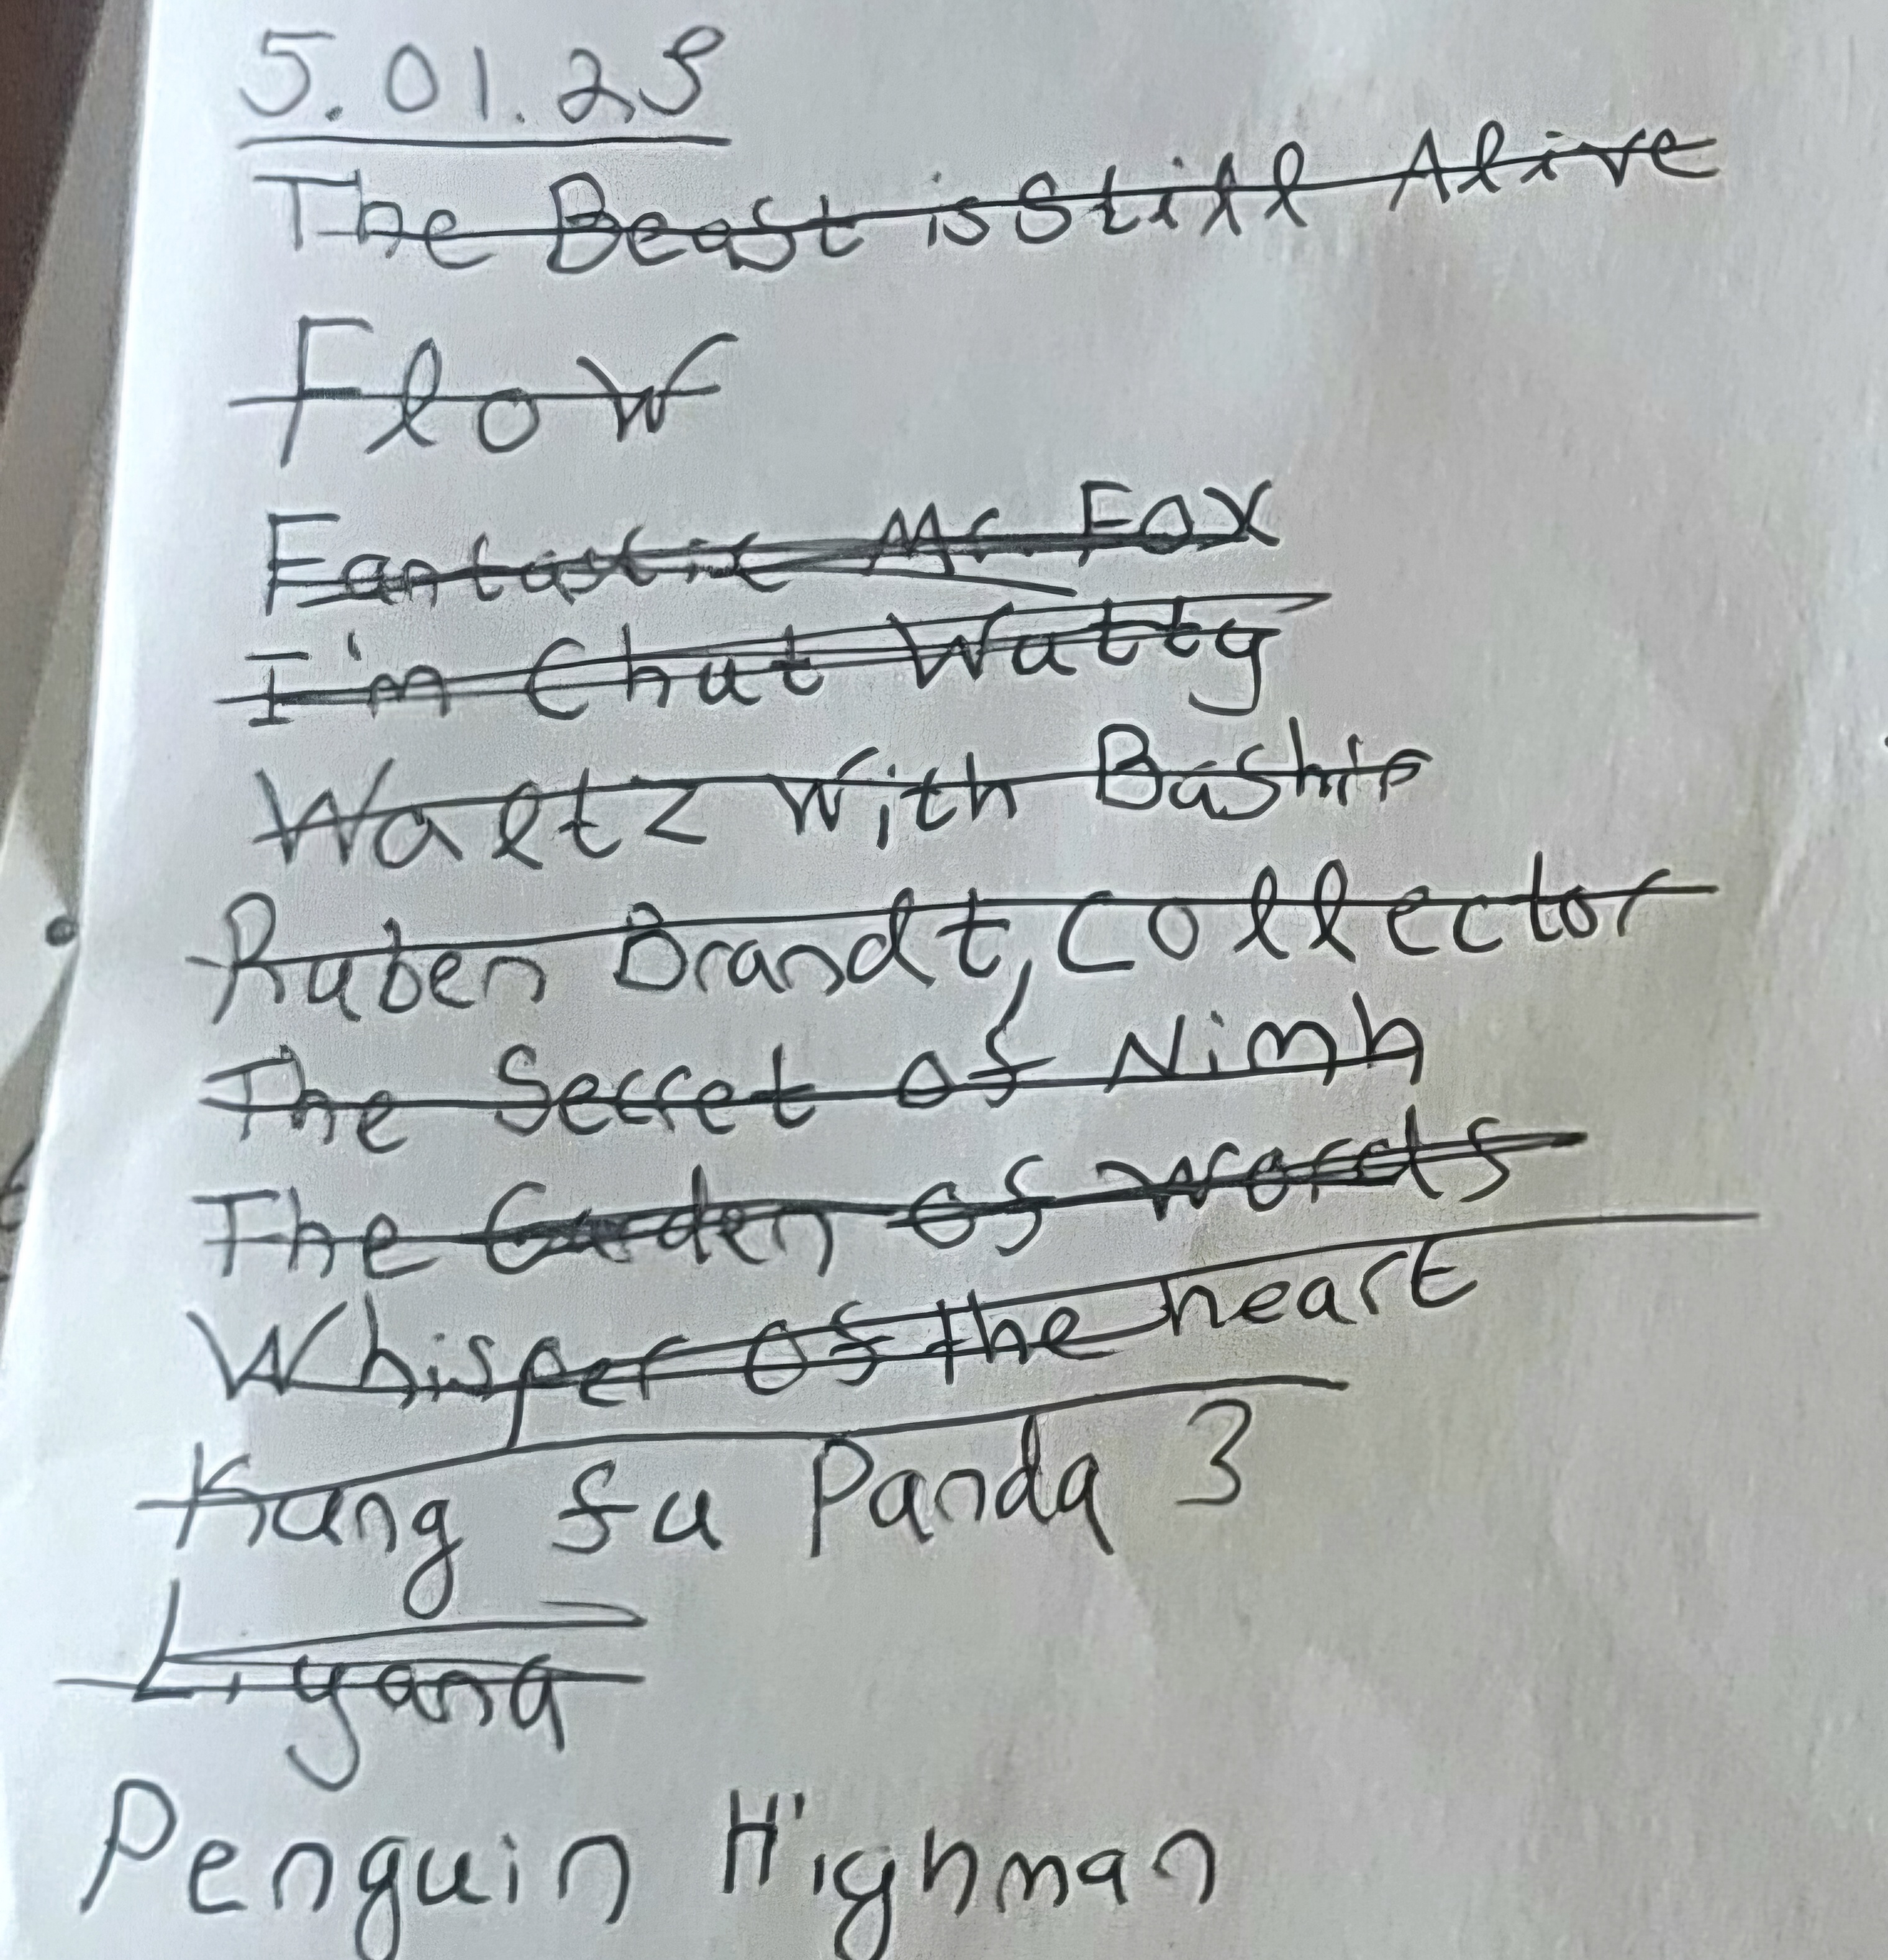 5.01.25
The Beast is Still Alive
Flow
Fantastic Mr. Fox
I'm Chut Watty
Waltz With Bashir
Ruben Brandt, Collector
The Secret of Nimh
The Garden of Words
Whisper of the heart
Kung fu Panda 3
Liyana
Penguin Highman